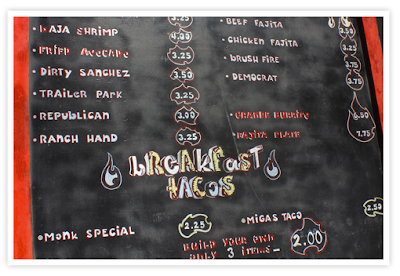 BAJA SHRIMP 3.25
FRIED AVOCADO 4.00
DIRTY SANCHEZ 3.50
TRAILER PARK 3.25
REPUBLICAN 3.00
RANCH HAND 3.25
BEEF FAJITA 3.50
CHICKEN FAJITA 3.50
BRUSH FIRE 3.75
DEMOCRAT 3.75
6.50
FAJITA PLATE 7.75
BREAKFAST
TACOS
MONK SPECIAL 2.25
MIGAS TACO 2.50
BUILD YOUR OWN 2.00
ONLY 3 ITEMS -